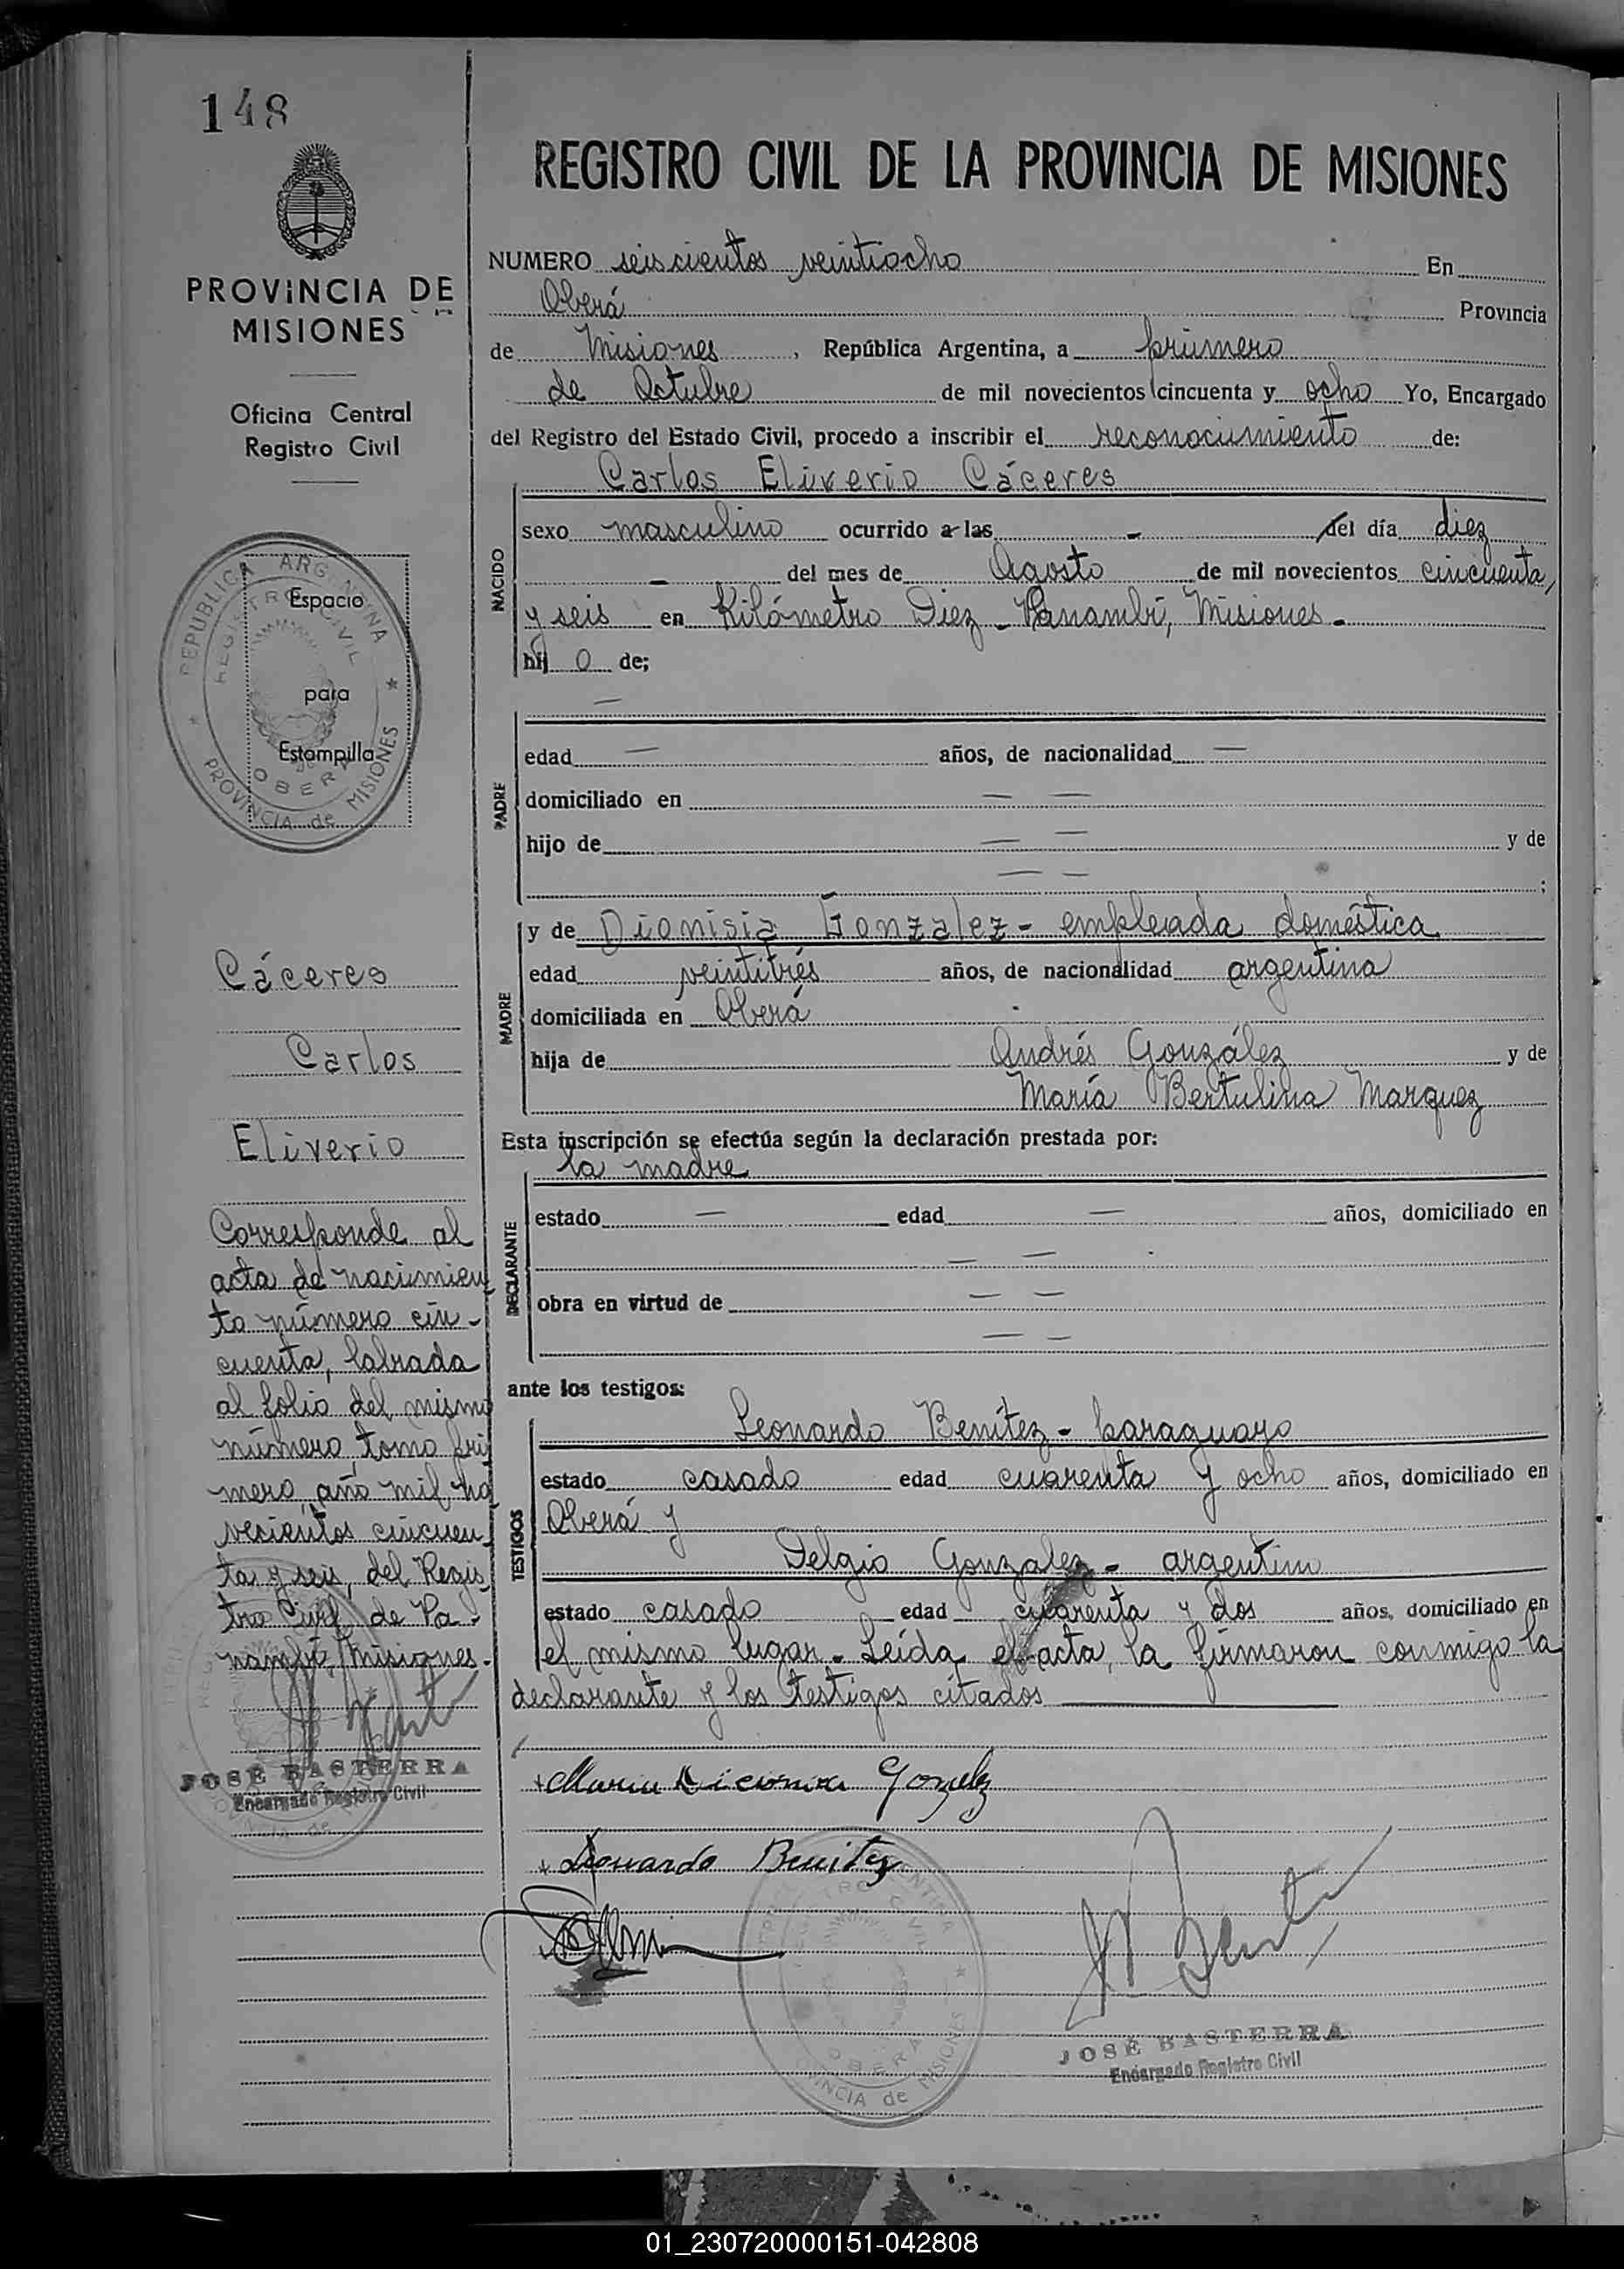 148
PROVINCIA DE
MISIONES
Oficina Central
Registro Civil
REPUBLICA ARGENTINA
REGISTRO CIVIL
OBERA
PROVINCIA de MISIONES
Espacio
para
Estampilla
Cáceres
Carlos
Eliverio
Corresponde al
acta de nacimien
to número cin-
cuenta, labrada
al folio del mismo
número, tomo pri
mero, año mil no
vecientos cincuen
ta y seis, del Regis
tro Civil de Pa-
nambí, Misiones.
JOSE BASTERRA
Encargado Registro Civil
REGISTRO CIVIL DE LA PROVINCIA DE MISIONES
NUMERO seiscientos veintiocho En
Oberá Provincia
de Misiones, República Argentina, a primero
de Octubre de mil novecientos cincuenta y ocho Yo, Encargado
del Registro del Estado Civil, procedo a inscribir el reconocimiento de:
Carlos Eliverio Cáceres
NACIDO
sexo masculino ocurrido a las - del día diez
- del mes de Agosto de mil novecientos cincuenta
y seis en Kilómetro Diez - Panambí, Misiones.-
hij o de;
PADRE
—
edad — años, de nacionalidad —
domiciliado en — —
hijo de — — y de
— — ;
MADRE
y de Dionisia Gonzalez - empleada doméstica
edad veintitrés años, de nacionalidad argentina
domiciliada en Oberá
hija de Andrés González y de
María Bertulina Marquez
Esta inscripción se efectúa según la declaración prestada por:
la madre
DECLARANTE
estado — edad — años, domiciliado en
— —
obra en virtud de — —
— —
ante los testigos:
TESTIGOS
Leonardo Benítez - paraguayo
estado casado edad cuarenta y ocho años, domiciliado en
Oberá y
Delgio Gonzalez - argentino
estado casado edad cuarenta y dos años, domiciliado en
el mismo lugar. Leída el acta, la firmaron conmigo la
declarante y los testigos citados
Maria Gonzalez
Leonardo Benitez
REGISTRO CIVIL
OBERA
PROVINCIA de MISIONES
JOSÉ BASTERRA
Encargado Registro Civil
01_230720000151-042808